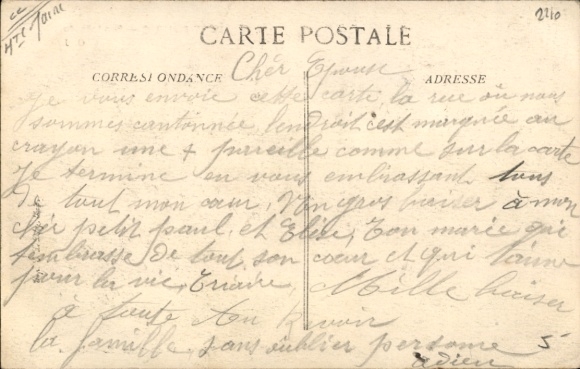 2210
CARTE POSTALE
CORRESPONDANCE
ADRESSE
Chér Epouse
Je vous envoie cette carte, la rue où nous
sommes cantonnée, lendroit est marquée au
crayon une + pareille comme sur la carte
Je termine en vous embrassant tous
De tout mon cœur, Un gros baiser à mon
chér petit paul, et Elise, Ton marie qui
tembrasse de tout son cœur et qui taime
pour la vie, Mille baiser
à toute Au Revoir
la famille, sans oublier persone
adieu
5